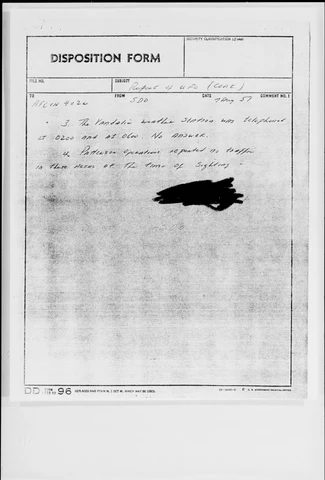 SECURITY CLASSIFICATION (If any)
DISPOSITION FORM
FILE NO.
SUBJECT
Report of UFO (Cont)
TO
FROM
DATE
COMMENT NO. 1
AFCIN 4E2x
SDO
Aug 57
3. The Vandalia weather station was telephoned
at 0200 and at No answer.
4. Patterson Operations reported no traffic
in these areas at the time of sighting.
DD FORM 96
REPLACES NME FORM 96, 1 OCT 48, WHICH MAY BE USED.